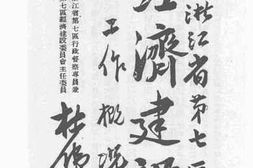 浙江省第七
經濟建設
工作概況
江省第七區行政督察專員兼
七區經濟建設委員會主任委員
杜